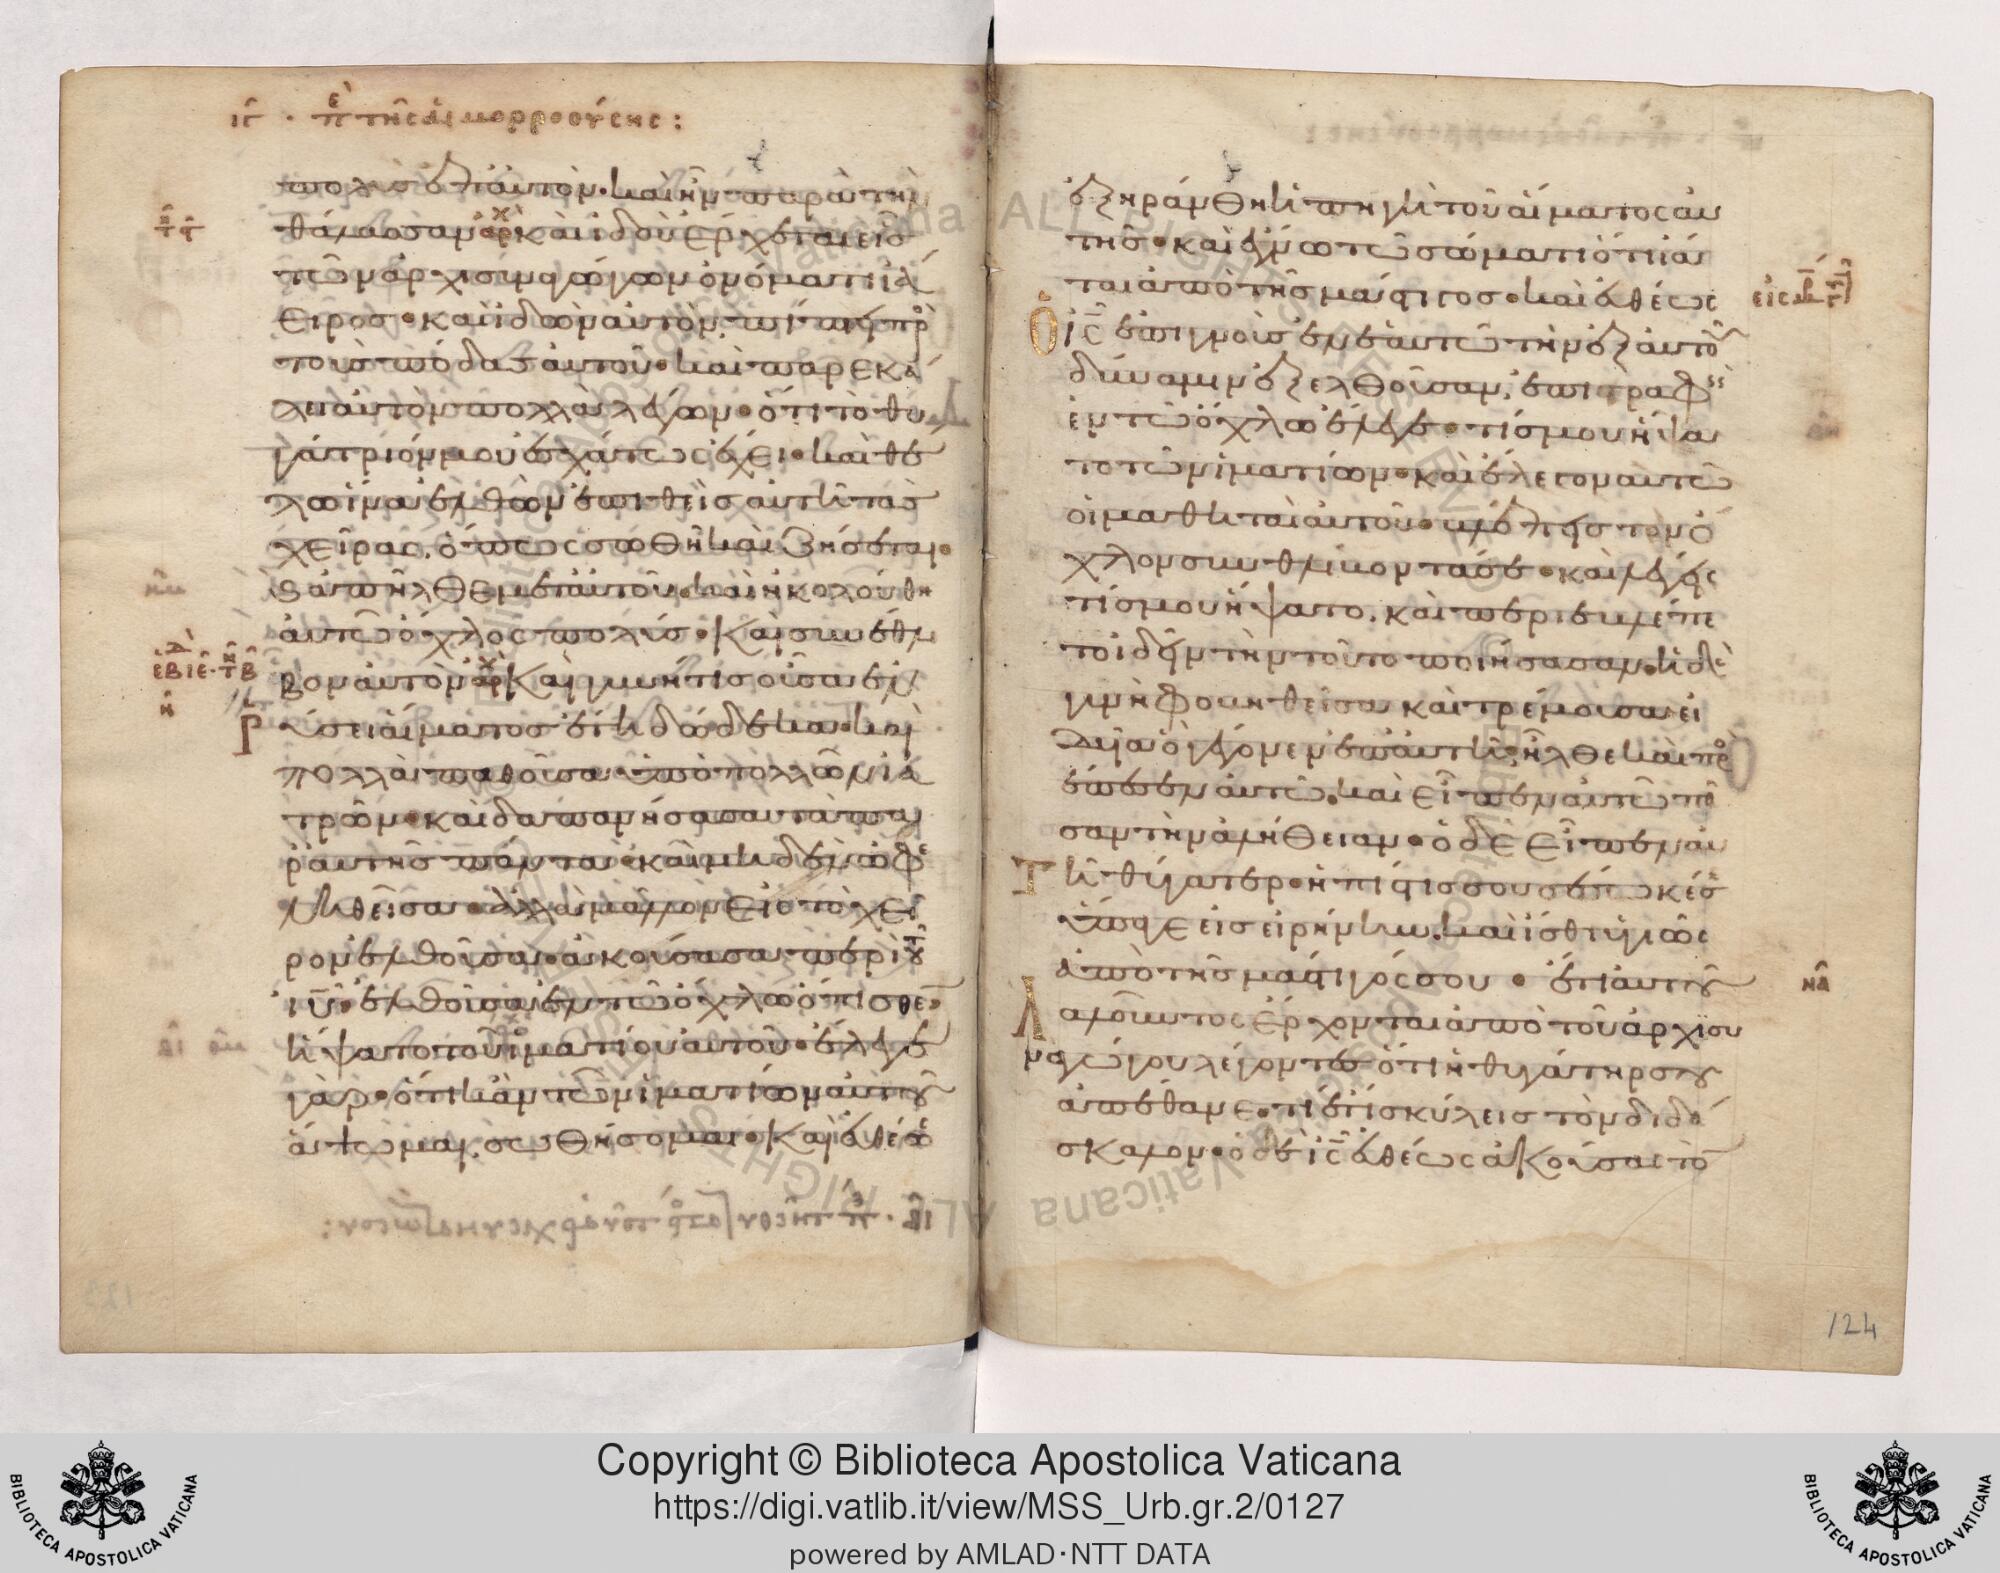 ιγ · περὶ τῆς αἱμορροούσης:
πολὺς ἐπ' αὐτὸν· καὶ ἦν παρὰ τὴν
θάλασσαν· καὶ ἰδοὺ ἔρχεται εἷς
τῶν ἀρχισυναγώγων ὀνόματι ἰά
ειρος· καὶ ἰδὼν αὐτὸν, πίπτει πρὸ
τοὺς πόδας αὐτοῦ· καὶ παρεκά
λει αὐτὸν πολλὰ λέγων· ὅτι τὸ θυ
γάτριόν μου ἐσχάτως ἔχει· καὶ θέ
λω ἵνα ἐλθὼν ἐπιθεὶς αὐτῆ τὰς
χεῖρας, ὅπως σωθῆ καὶ ζήσεται·
καὶ ἀπῆλθεν μετ' αὐτοῦ· καὶ ἠκολούθη
αὐτῶ ὄχλος πολύς· Καὶ συνέθλι
βον αὐτὸν· Καὶ γυνή τις οὖσα ἐν
ῥύσει αἵματος ἔτη δώδεκα· καὶ
πολλὰ παθοῦσα ὑπὸ πολλῶν ἰα
τρῶν· καὶ δαπανήσασα τὰ πα
ρ' αὐτῆς πάντα· καὶ μηδὲν ὠφε
ληθεῖσα· ἀλλὰ μᾶλλον εἰς τὸ χεῖ
ρον ἐλθοῦσα· ἀκούσασα περὶ τοῦ
ιυ· ἐλθοῦσα ἐν τῶ ὄχλω ὄπισθεν
ἥψατο τοῦ ἱματίου αὐτοῦ· ἔλεγε
γὰρ· ὅτι κἂν τῶν ἱματίων αὐτοῦ
ἅψωμαι, σωθήσομαι· Καὶ εὐθέως
ἐξηράνθη ἡ πηγὴ τοῦ αἵματος αὐ
τῆς· καὶ ἔγνω τῶ σώματι ὅτι ἴα
ται ἀπὸ τῆς μάστιγος· καὶ εὐθέως
ὁ ις ἐπιγνοὺς ἐν ἑαυτῶ τὴν ἐξ αὐτοῦ
δύναμιν ἐξελθοῦσαν, ἐπιστραφεὶς
ἐν τῶ ὄχλω ἔλεγε· τίς μου ἥψα
το τῶν ἱματίων· καὶ ἔλεγον αὐτῶ
οἱ μαθηταὶ αὐτοῦ· βλέπεις τὸν ὄ
χλον συνθλίβοντά σε· καὶ λέγεις
τίς μου ἥψατο, καὶ περιεβλέπε
το ἰδεῖν τὴν τοῦτο ποιήσασαν· ἡ δὲ
γυνὴ φοβηθεῖσα καὶ τρέμουσα εἰ
δυῖα ὃ γέγονεν ἐπ' αὐτῆ, ἦλθε καὶ προ
έπεσεν αὐτῶ· καὶ εἶπεν αὐτῶ πᾶ
σαν τὴν ἀλήθειαν· ὁ δὲ εἶπεν αὐ
τῆ· θύγατερ· ἡ πίστις σου σέσωκέ σε
ὕπαγε εἰς εἰρήνην· καὶ ἴσθι ὑγιὴς
ἀπὸ τῆς μάστιγός σου· ἔτι αὐτοῦ
λαλοῦντος ἔρχονται ἀπὸ τοῦ ἀρχισυ
ναγώγου λέγοντες ὅτι ἡ θυγάτηρ σου
ἀπέθανε· τί ἔτι σκύλεις τὸν διδά
σκαλον· ὁ δὲ ις εὐθέως ἀκούσας τὸν
124
Copyright © Biblioteca Apostolica Vaticana
https://digi.vatlib.it/view/MSS_Urb.gr.2/0127
powered by AMLAD·NTT DATA
BIBLIOTECA APOSTOLICA VATICANA
BIBLIOTECA APOSTOLICA VATICANA